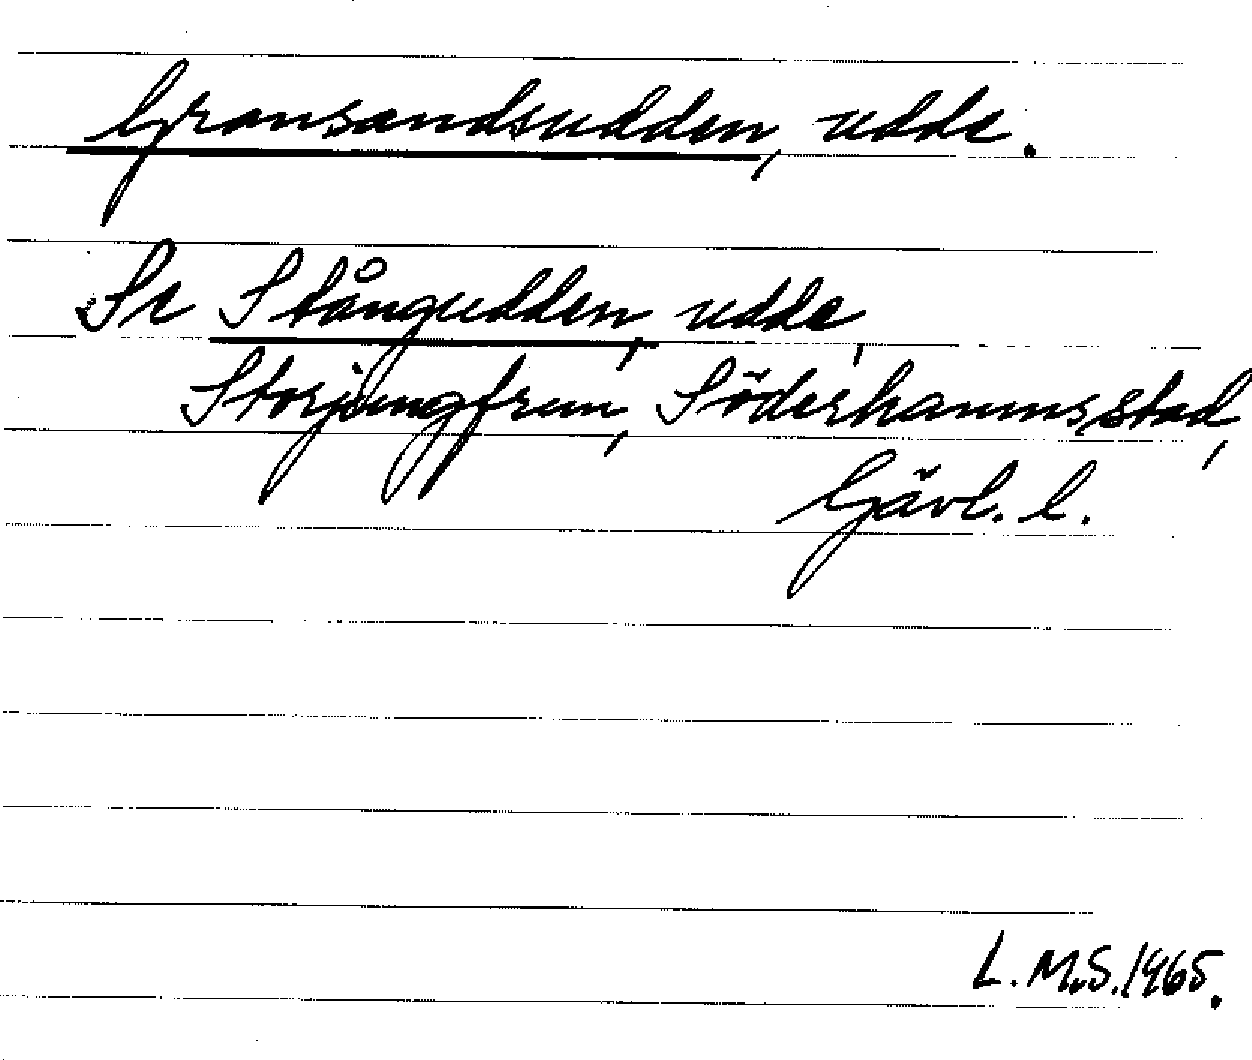 Gransandsudden, udde.
Se Stångudden, udde,
Storjungfrun, Söderhamns stad,
Gävl. l.
L. M.S. 1965.